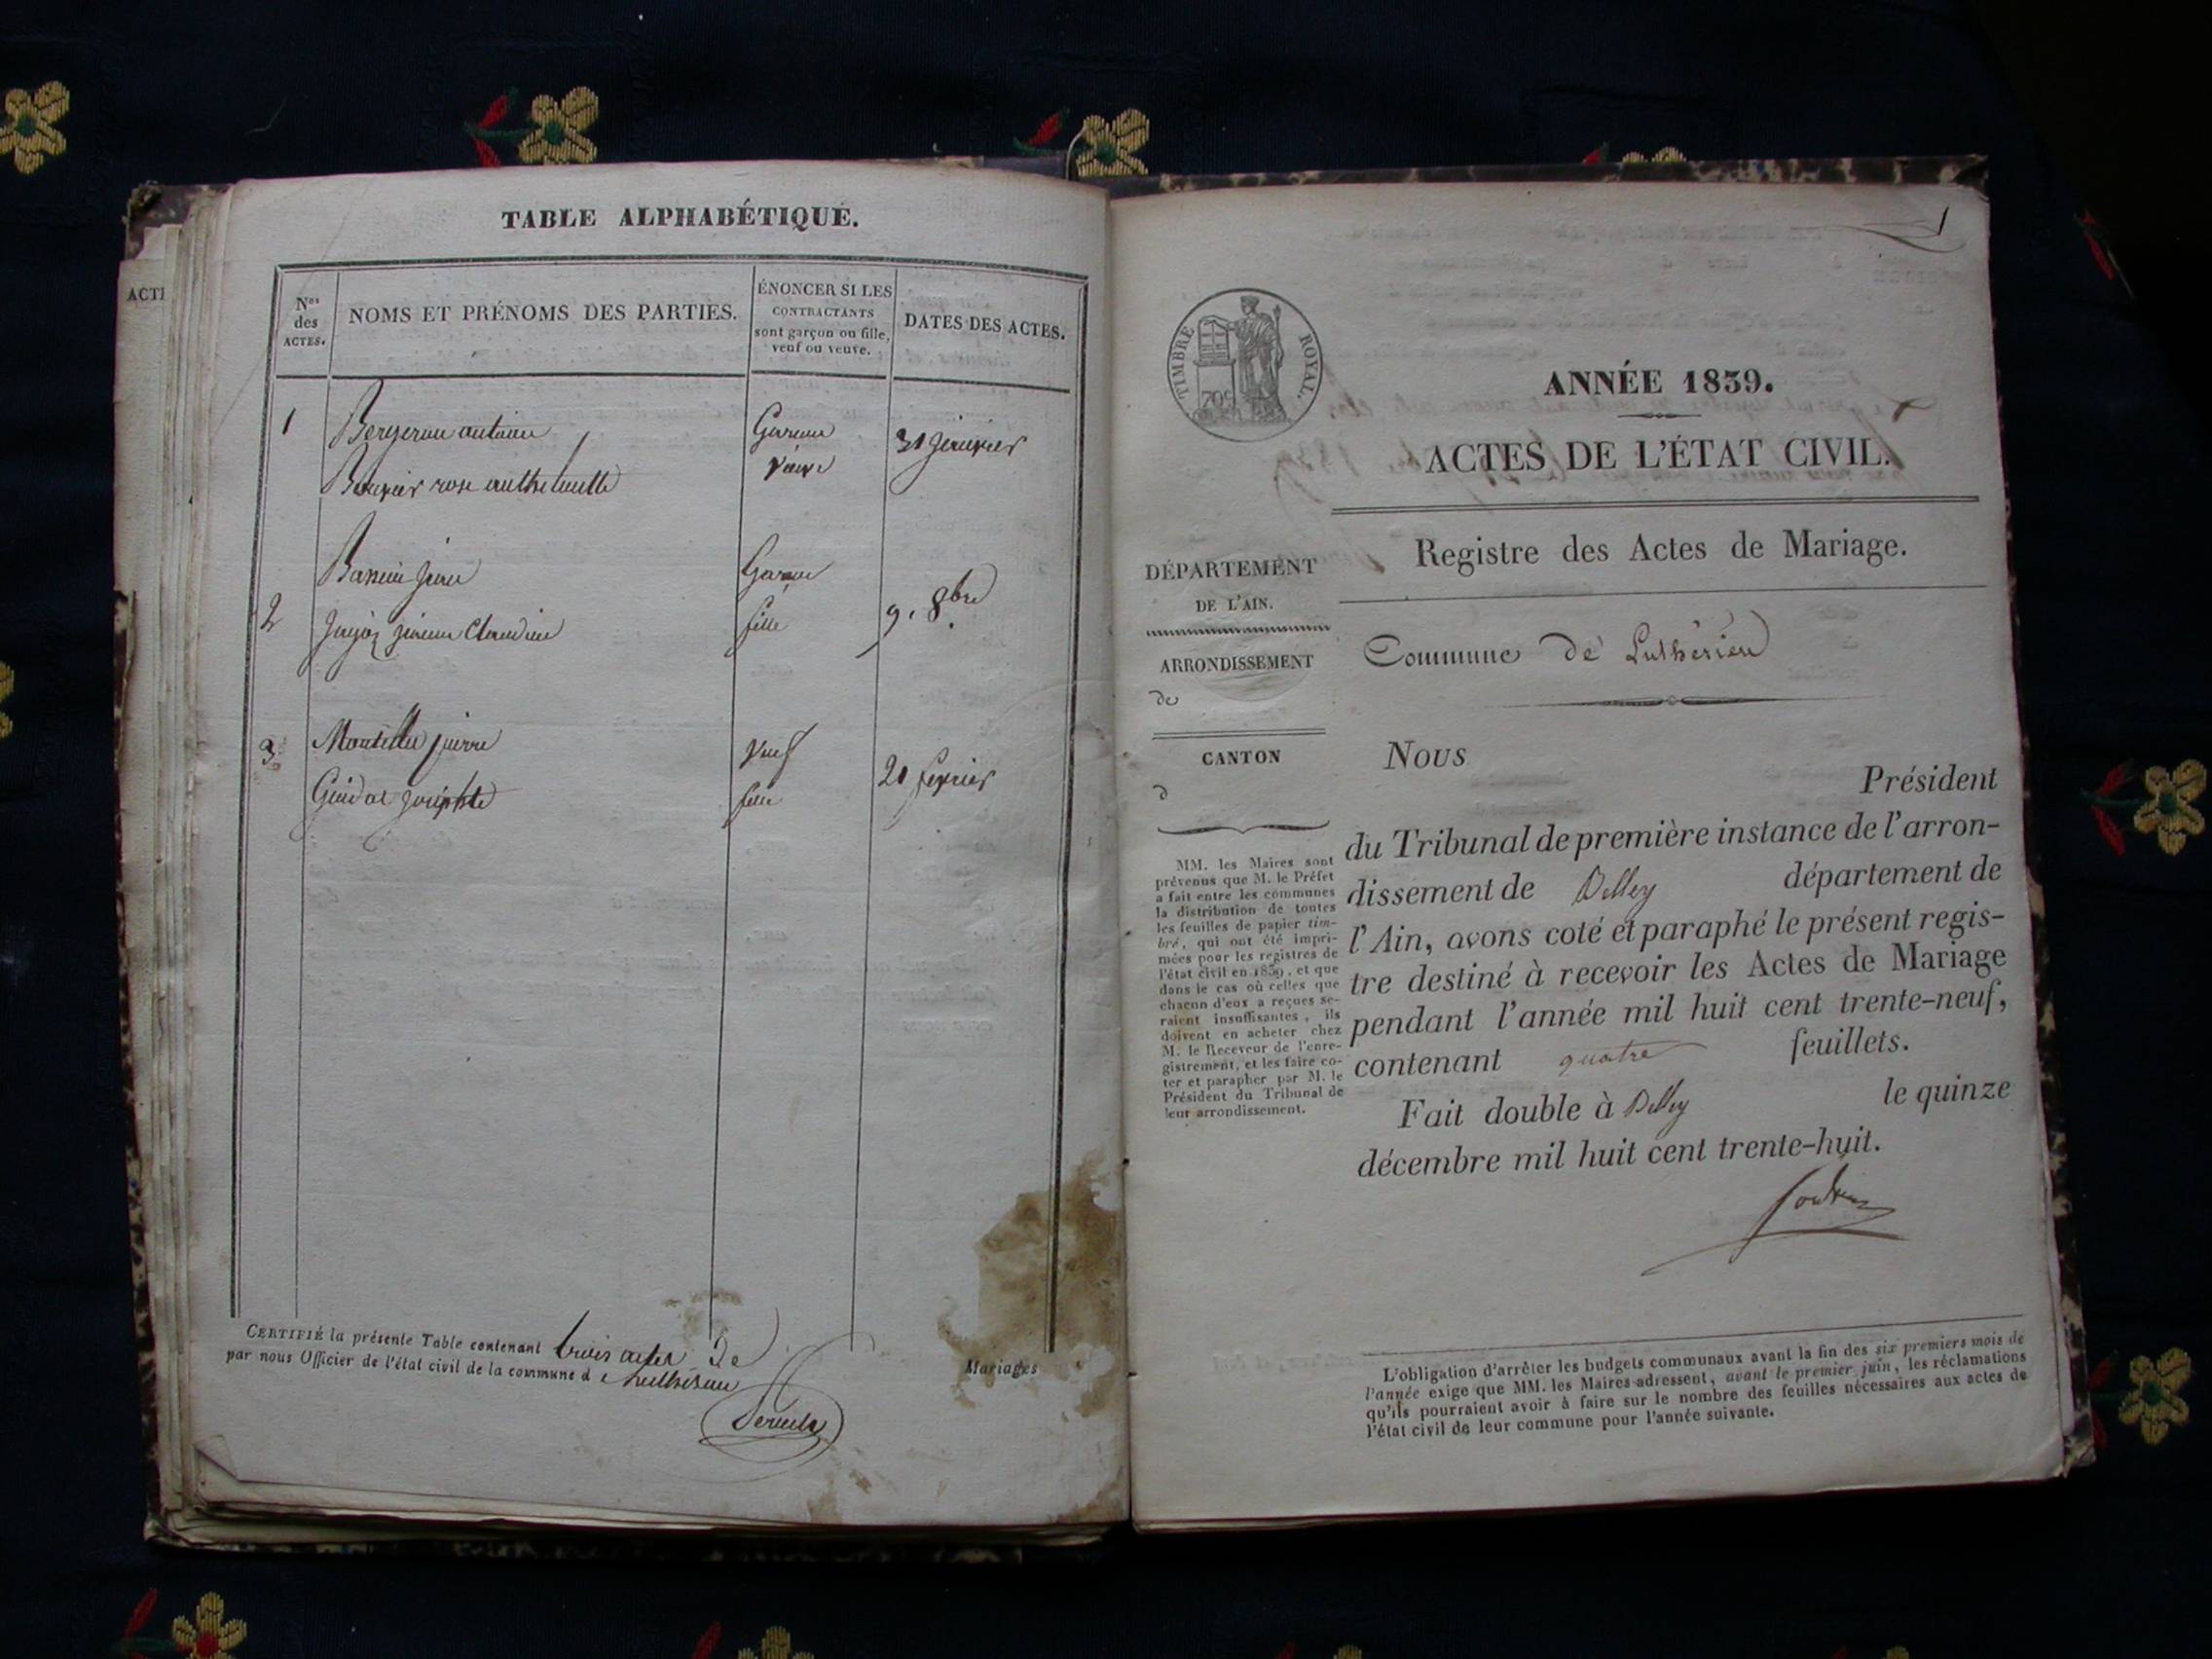 ACTI
TABLE ALPHABÉTIQUE.
Nos des ACTES.
NOMS ET PRÉNOMS DES PARTIES.
ÉNONCER SI LES CONTRACTANTS sont garçon ou fille, veuf ou veuve.
DATES DES ACTES.
1
Garçon
31 janvier
rose
veuve
2
jean
Garçon
fille
9. 8bre
3
pierre
veuf
21 fevrier
fille
CERTIFIÉ la présente Table contenant trois actes de
par nous Officier de l'état civil de la commune d
Mariages
1
TIMBRE ROYAL.
70c
ANNÉE 1839.
ACTES DE L'ÉTAT CIVIL.
Registre des Actes de Mariage.
DÉPARTEMENT
DE L'AIN.
ARRONDISSEMENT
de
CANTON
d
Commune de Luthézieu
MM. les Maires sont
prévenus que M. le Préfet
a fait entre les communes
la distribution de toutes
les feuilles de papier tim-
bré, qui ont été impri-
mées pour les registres de
l'état civil en 1839, et que
dans le cas où celles que
chacun d'eux a reçues se-
raient insuffisantes, ils
doivent en acheter chez
M. le Receveur de l'enre-
gistrement, et les faire co-
ter et parapher par M. le
Président du Tribunal de
leur arrondissement.
Nous
Président
du Tribunal de première instance de l'arron-
dissement de Belley département de
l'Ain, avons coté et paraphé le présent regis-
tre destiné à recevoir les Actes de Mariage
pendant l'année mil huit cent trente-neuf,
contenant quatre feuillets.
Fait double à Belley le quinze
décembre mil huit cent trente-huit.
L'obligation d'arrêter les budgets communaux avant la fin des six premiers mois de
l'année exige que MM. les Maires adressent, avant le premier juin, les réclamations
qu'ils pourraient avoir à faire sur le nombre des feuilles nécessaires aux actes de
l'état civil de leur commune pour l'année suivante.